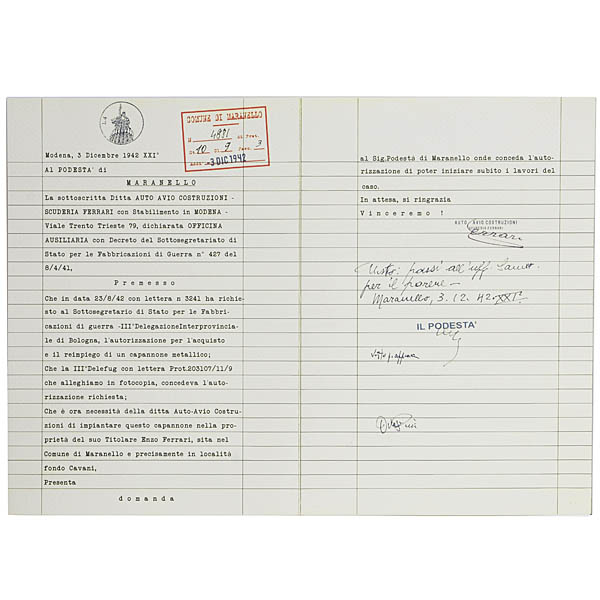 LA
COMUNE DI MARANELLO
N 4881 di Prot.
Cat. 10 Cl. 9 Fasc. 3
Addì -3 DIC 1942
Modena, 3 Dicembre 1942 XXI°
Al PODESTA' di
MARANELLO
La sottoscritta Ditta AUTO AVIO COSTRUZIONI -
SCUDERIA FERRARI con Stabilimento in MODENA -
Viale Trento Trieste 79, dichiarata OFFICINA
AUSILIARIA con Decreto del Sottosegretariato di
Stato per le Fabbricazioni di Guerra n° 427 del
8/4/41,
Premesso
Che in data 23/8/42 con lettera n 3241 ha richie-
sto al Sottosegretario di Stato per le Fabbri-
cazioni di guerra -III°DelegazioneInterprovincia-
le di Bologna, l'autorizzazione per l'acquisto
e il reimpiego di un capannone metallico;
Che la III°Delefug con lettera Prot.203107/11/9
che alleghiamo in fotocopia, concedeva l'auto-
rizzazione richiesta;
Che è ora necessità della ditta Auto-Avio Costru-
zioni di impiantare questo capannone nella pro-
prietà del suo Titolare Enzo Ferrari, sita nel
Comune di Maranello e precisamente in località
fondo Cavani,
Presenta
domanda
al Sig.Podestà di Maranello onde conceda l'auto-
rizzazione di poter iniziare subito i lavori del
caso.
In attesa, si ringrazia
Vinceremo !
AUTO AVIO COSTRUZIONI
SCUDERIA FERRARI
Ferrari
Visto: passi all'uff.
per il parere -
Maranello, 3. 12. 42. XXI°
IL PODESTA'